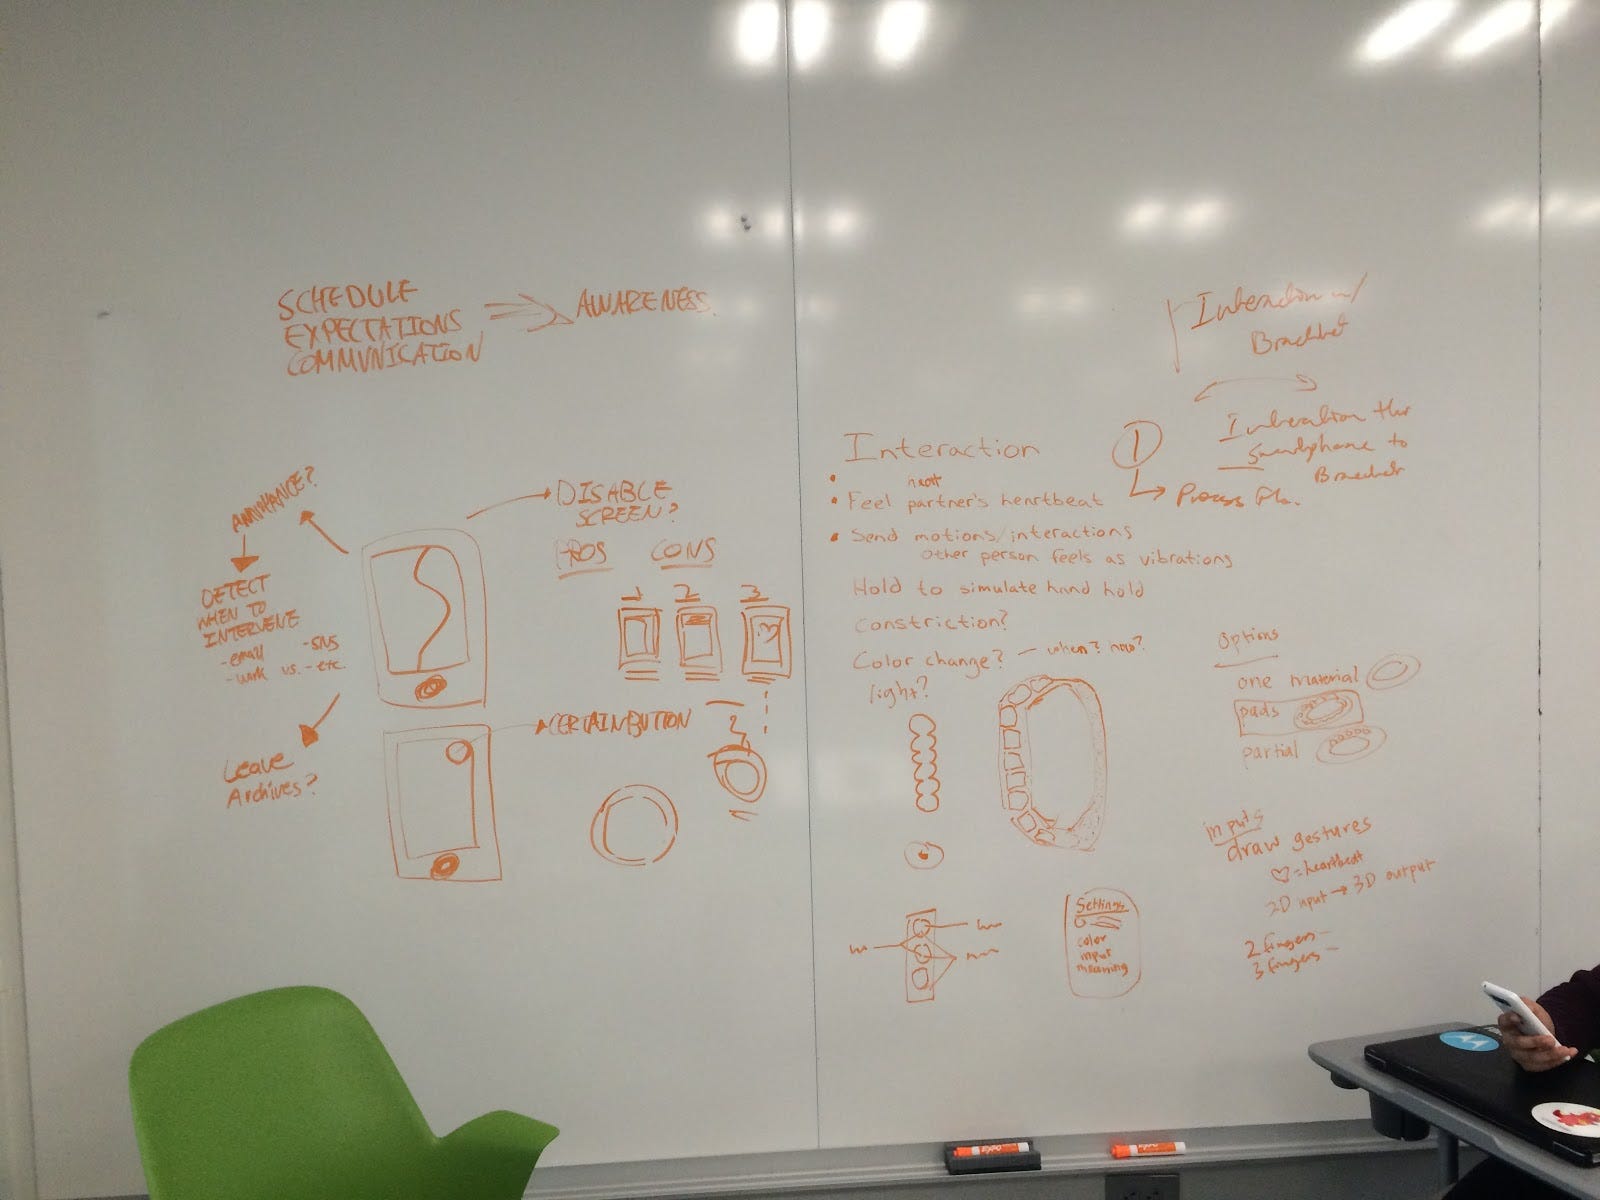 SCHEDULE
EXPECTATIONS
COMMUNICATION
AWARENESS
ANNOYANCE?
DETECT
WHEN TO
INTERVENE
- email - SNS
- work vs. - etc.
Leave
Archives?
DISABLE
SCREEN?
PROS CONS
1 2 3
CERTAIN BUTTON
Interaction w/
Bracelet
Interaction thr
Smartphone to
Bracelet
1
Process
Interaction
heat
• Feel partner's heartbeat
• Send motions/interactions
other person feels as vibrations
Hold to simulate hand hold
constriction?
Color change? — when? how?
light?
options
one material
pads
partial
inputs
draw gestures
♡ = heartbeat
2D input → 3D output
2 fingers –
3 fingers –
Settings
color
input
meaning
EXPO